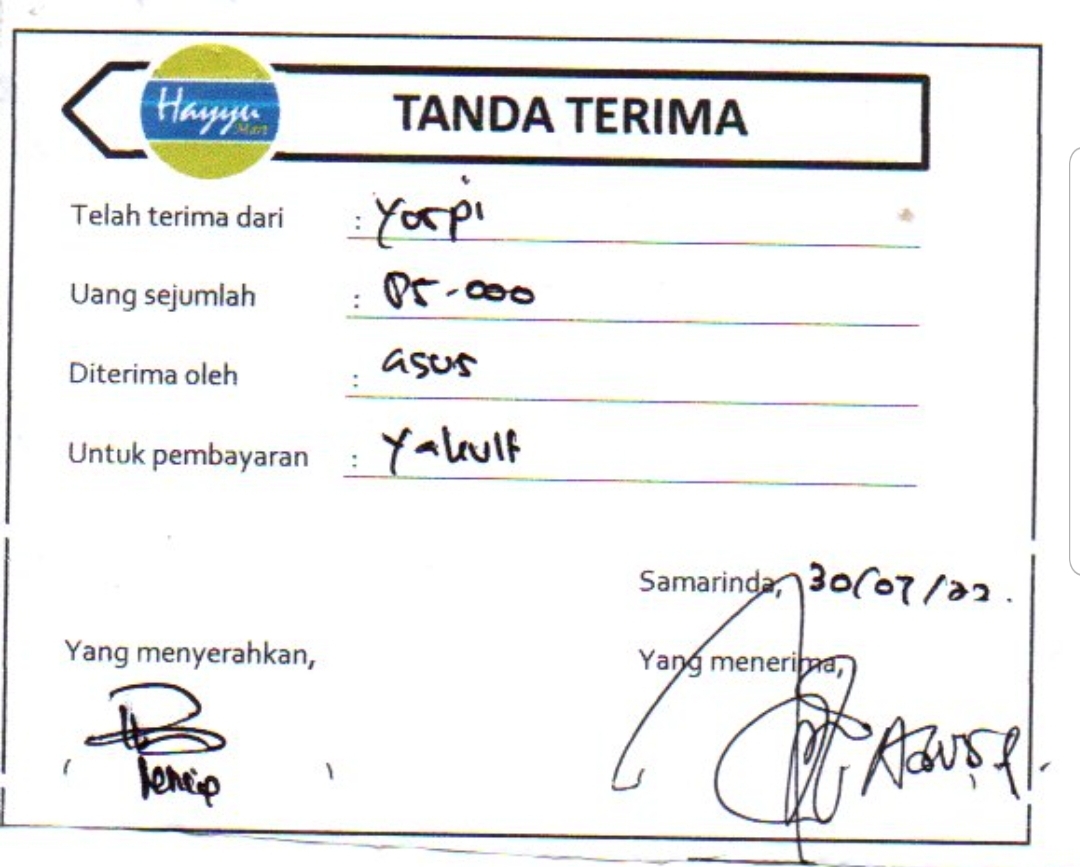 Hayyu Mart
TANDA TERIMA
Telah terima dari : Yorpi
Uang sejumlah : 85.000
Diterima oleh : asus
Untuk pembayaran : Yakult
Samarinda, 30/07/22.
Yang menyerahkan,
Yang menerima,
( )
(